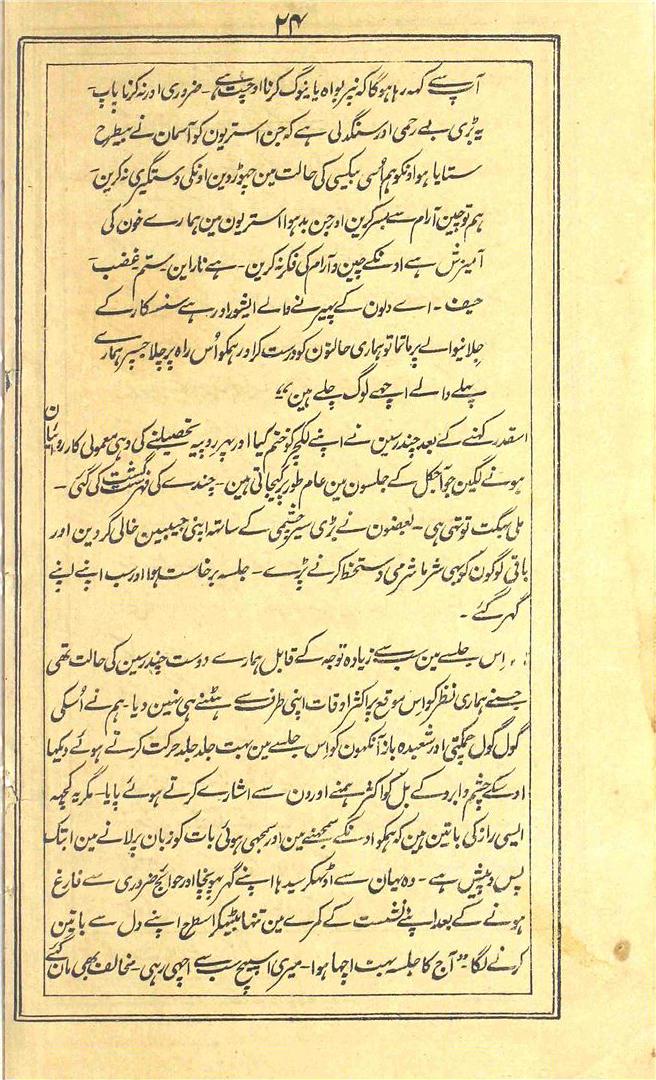 ۲۴
آپ سے کہہ رہا ہوگا کہ نیر بواہ یا نیوگ کرنا اوچت ہے۔ ضروری اور نہ کرنا پاپ۔
یہ بڑی بے رحمی اور سنگدلی ہے کہ جن استریون کو آسمان نے بیطرح
ستایا ہو اونکو ہم اُسی بیکسی کی حالت مین چہوڑ دین اونکی دستگیری نہ کرین۔
ہم تو چین آرام سے بسر کرین اور جن بدہوا استریون مین ہمارے خون کی
آمیزش ہے اونکے چین و آرام کی فکر نہ کرین۔ ہے ناراین۔ ستم غضب۔
حیف۔ اے دلون کے پہیرنے والے ایشور اور ہے سنسکار کے
چلانیوالے پرماتما تو ہماری حالتون کو درست کر اور ہمکو اُس راہ پر چلا جسپر ہماری
پہلے والے اچھے لوگ چلے ہین“
اسقدر کہنے کے بعد چندرسین نے اپنے لکچر کو ختم کیا اور پہر روپیہ تحصیلنے کی وہی معمولی کارروئیان
ہونے لگین جو آجکل کے جلسون مین عام طور پر کیجاتی ہین۔ چندے کی فہرست گشت کی گئی۔
ملی بہگت تو تہی ہی۔ بعضون نے بڑی سیر چشمی کے ساتہہ اپنی جیبین خالی کر دین اور
باقی لوگون کو بہی شرما شرمی دستخط کرنے پڑے۔ جلسہ برخاست ہوا اور سب اپنے اپنے
گہر گئے۔
اِس جلسے مین سب سے زیادہ توجہ کے قابل ہمارے دوست چندرسین کی حالت تہی
جسنے ہماری نظر کو اس موقع پر اکثر اوقات اپنی طرف سے ہٹنے ہی نہین دیا۔ ہم نے اُسکی
گول گول چمکتی اور شعبدہ باز آنکہون کو اس جلسے مین بہت جلد جلد حرکت کرتے ہوئے دیکہا
اوسکے چشم و ابرو کے بل کو اکثر ہمنے اورون سے اشارے کرتے ہوئے پایا۔ مگر یہ کچہہ
ایسی راز کی باتین ہین کہ ہمکو اونکے سمجہنے مین اور سمجہی ہوئی بات کو زبان پر لانے مین ابتک
پس و پیش ہے۔ وہ یہان سے اوٹہکر سیدہا اپنے گہر پہونچا اور حوائج ضروری سے فارغ
ہونے کے بعد اپنے نشست کے کمرے مین تنہا بیٹہکر اسطرح اپنے دل سے باتین
کرنے لگا۔ ”آج کا جلسہ بہت اچہا ہوا۔ میری اسپیچ سب سے اچہی رہی۔ مخالف بہی مان گئے